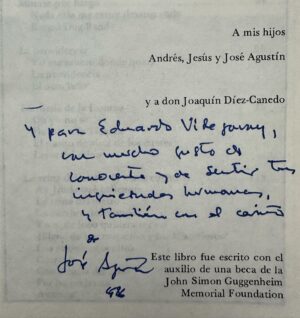 A mis hijos
Andrés, Jesús y José Agustín
y a don Joaquín Díez-Canedo
Y para Eduardo
con mucho gusto de
conocerte y de sentir tus
inquietudes humanas,
y también con el cariño
de
José Agustín
Este libro fue escrito con el
auxilio de una beca de la
John Simon Guggenheim
Memorial Foundation